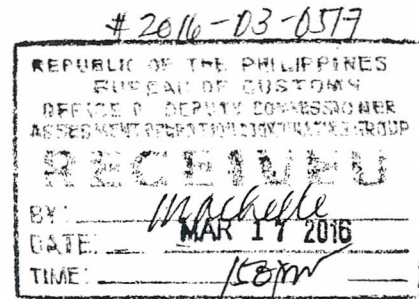 # 2016-03-0517
REPUBLIC OF THE PHILIPPINES
BUREAU OF CUSTOMS
OFFICE OF DEPUTY COMMISSIONER
ASSESSMENT OPERATION COORDINATING GROUP
RECEIVED
BY: Machelle
DATE: MAR 17 2016
TIME: 150pm